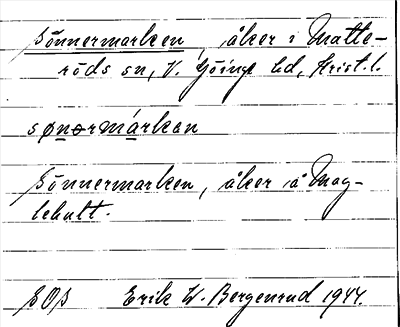 Sönnermarken, åker i Matte-
röds sn, V. Göinge hd, Krist. l.
sønərmárkən
Sönnermarken, åker å Mag-
lehult.
SOS Erik W. Bergenrud 1944.